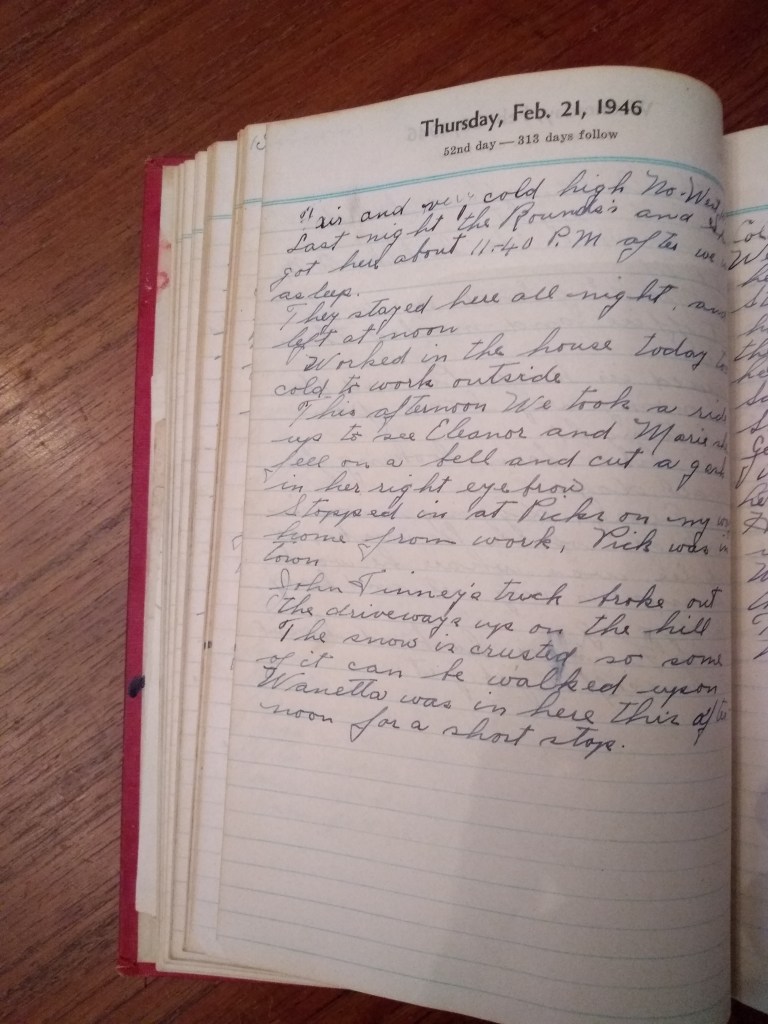 Thursday, Feb. 21, 1946
52nd day — 313 days follow
Fair and very cold high No-West
Last night the Rounds's and
got here about 11:40 P.M after we
asleep.
They stayed here all night, and
left at noon
Worked in the house today
cold to work outside
This afternoon We took a ride
up to see Eleanor and Marie
fell on a bell and cut a
in her right eye brow
Stopped in at Picks on my
home from work, Pick was in
town
John Tinney's truck broke out
the driveways up on the hill
The snow is crusted so some
of it can be walked upon
Wanetta was in here this after
noon for a short stop.